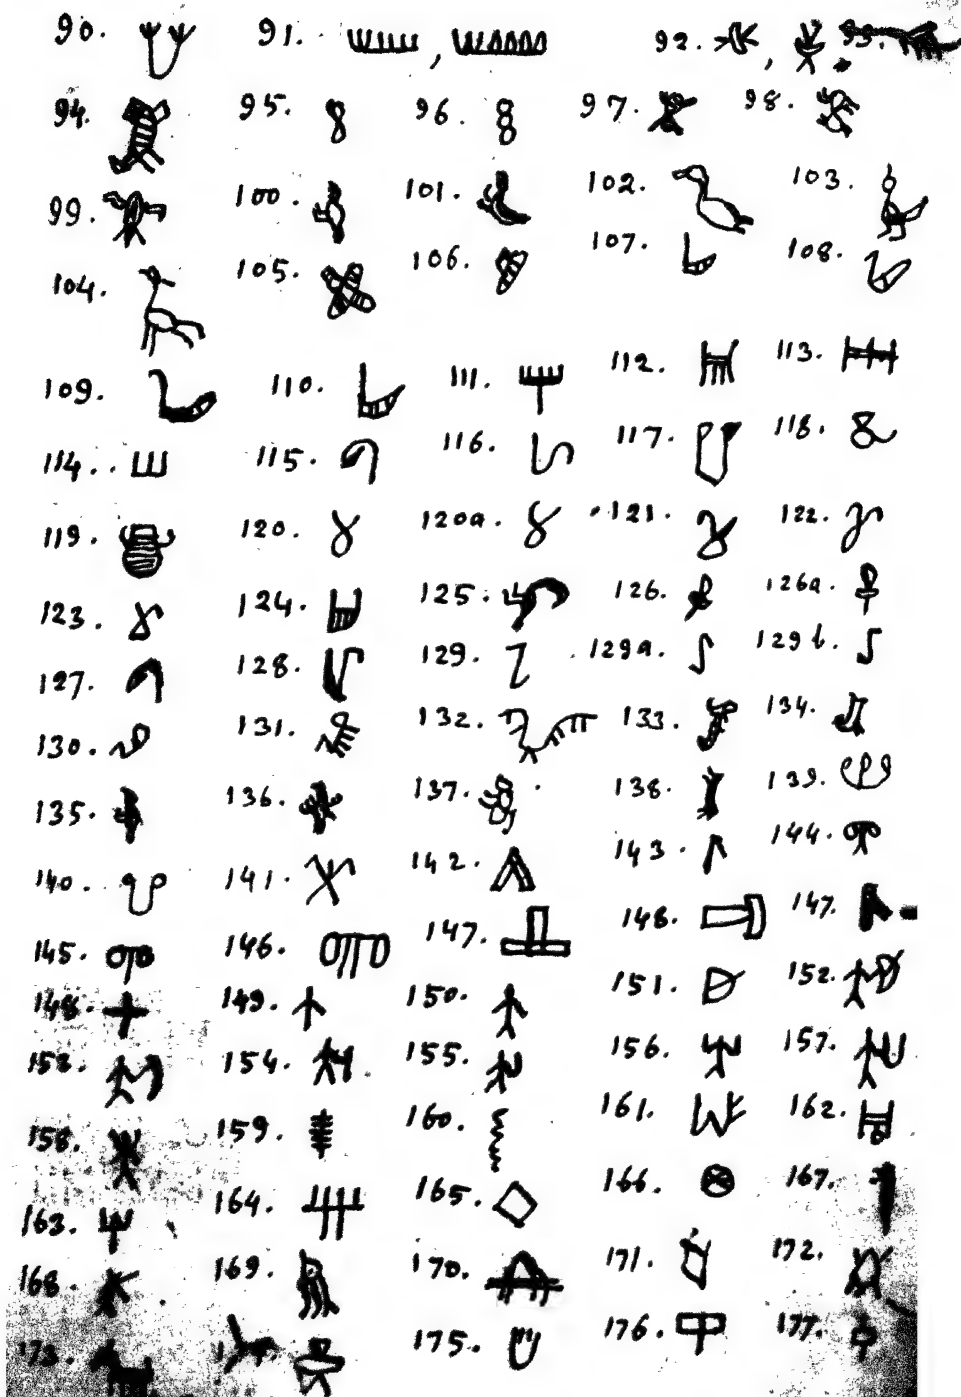 90. 91. , 92. , 93.
94. 95. 96. 97. 98.
99. 100. 101. 102. 103.
104. 105. 106. 107. 108.
109. 110. 111. 112. 113.
114. 115. 116. 117. 118.
119. 120. 120a. 121. 122.
123. 124. 125. 126. 126a.
127. 128. 129. 129a. 129b.
130. 131. 132. 133. 134.
135. 136. 137. 138. 139.
140. 141. 142. 143. 144.
145. 146. 147. 148. 147.
148. 149. 150. 151. 152.
153. 154. 155. 156. 157.
158. 159. 160. 161. 162.
163. 164. 165. 166. 167.
168. 169. 170. 171. 172.
173. 175. 176. 177.